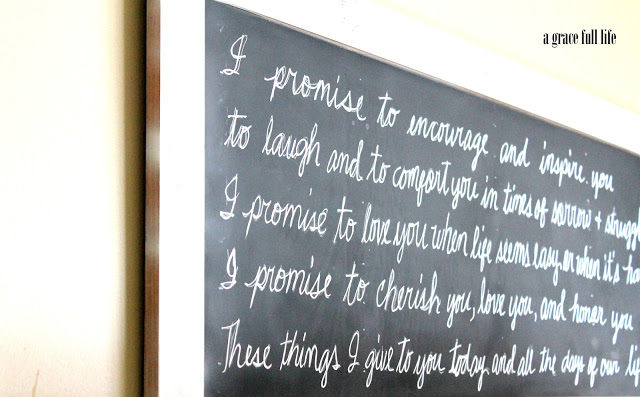 a grace full life
I promise to encourage and inspire you
to laugh and to comfort you in times of sorrow + struggl
I promise to love you when life seems easy or when it's ha
I promise to cherish you, love you, and honor you
These things I give to you today and all the days of our li